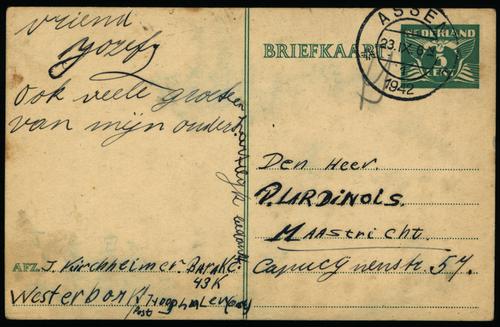 vriend
Jozef
Ook veele groeten
van mijn ouders.
en hartelijk bedankt.
AFZ. J. Kirchheimer. Barak C.
43K
Westerbork
Post Hooghalen (Oost)
BRIEFKAART
ASSEN
23.IX
1942
NEDERLAND
5
CENT
Den Heer.
P. LARDINOIS.
Maastricht.
Capucijnenstr. 57.